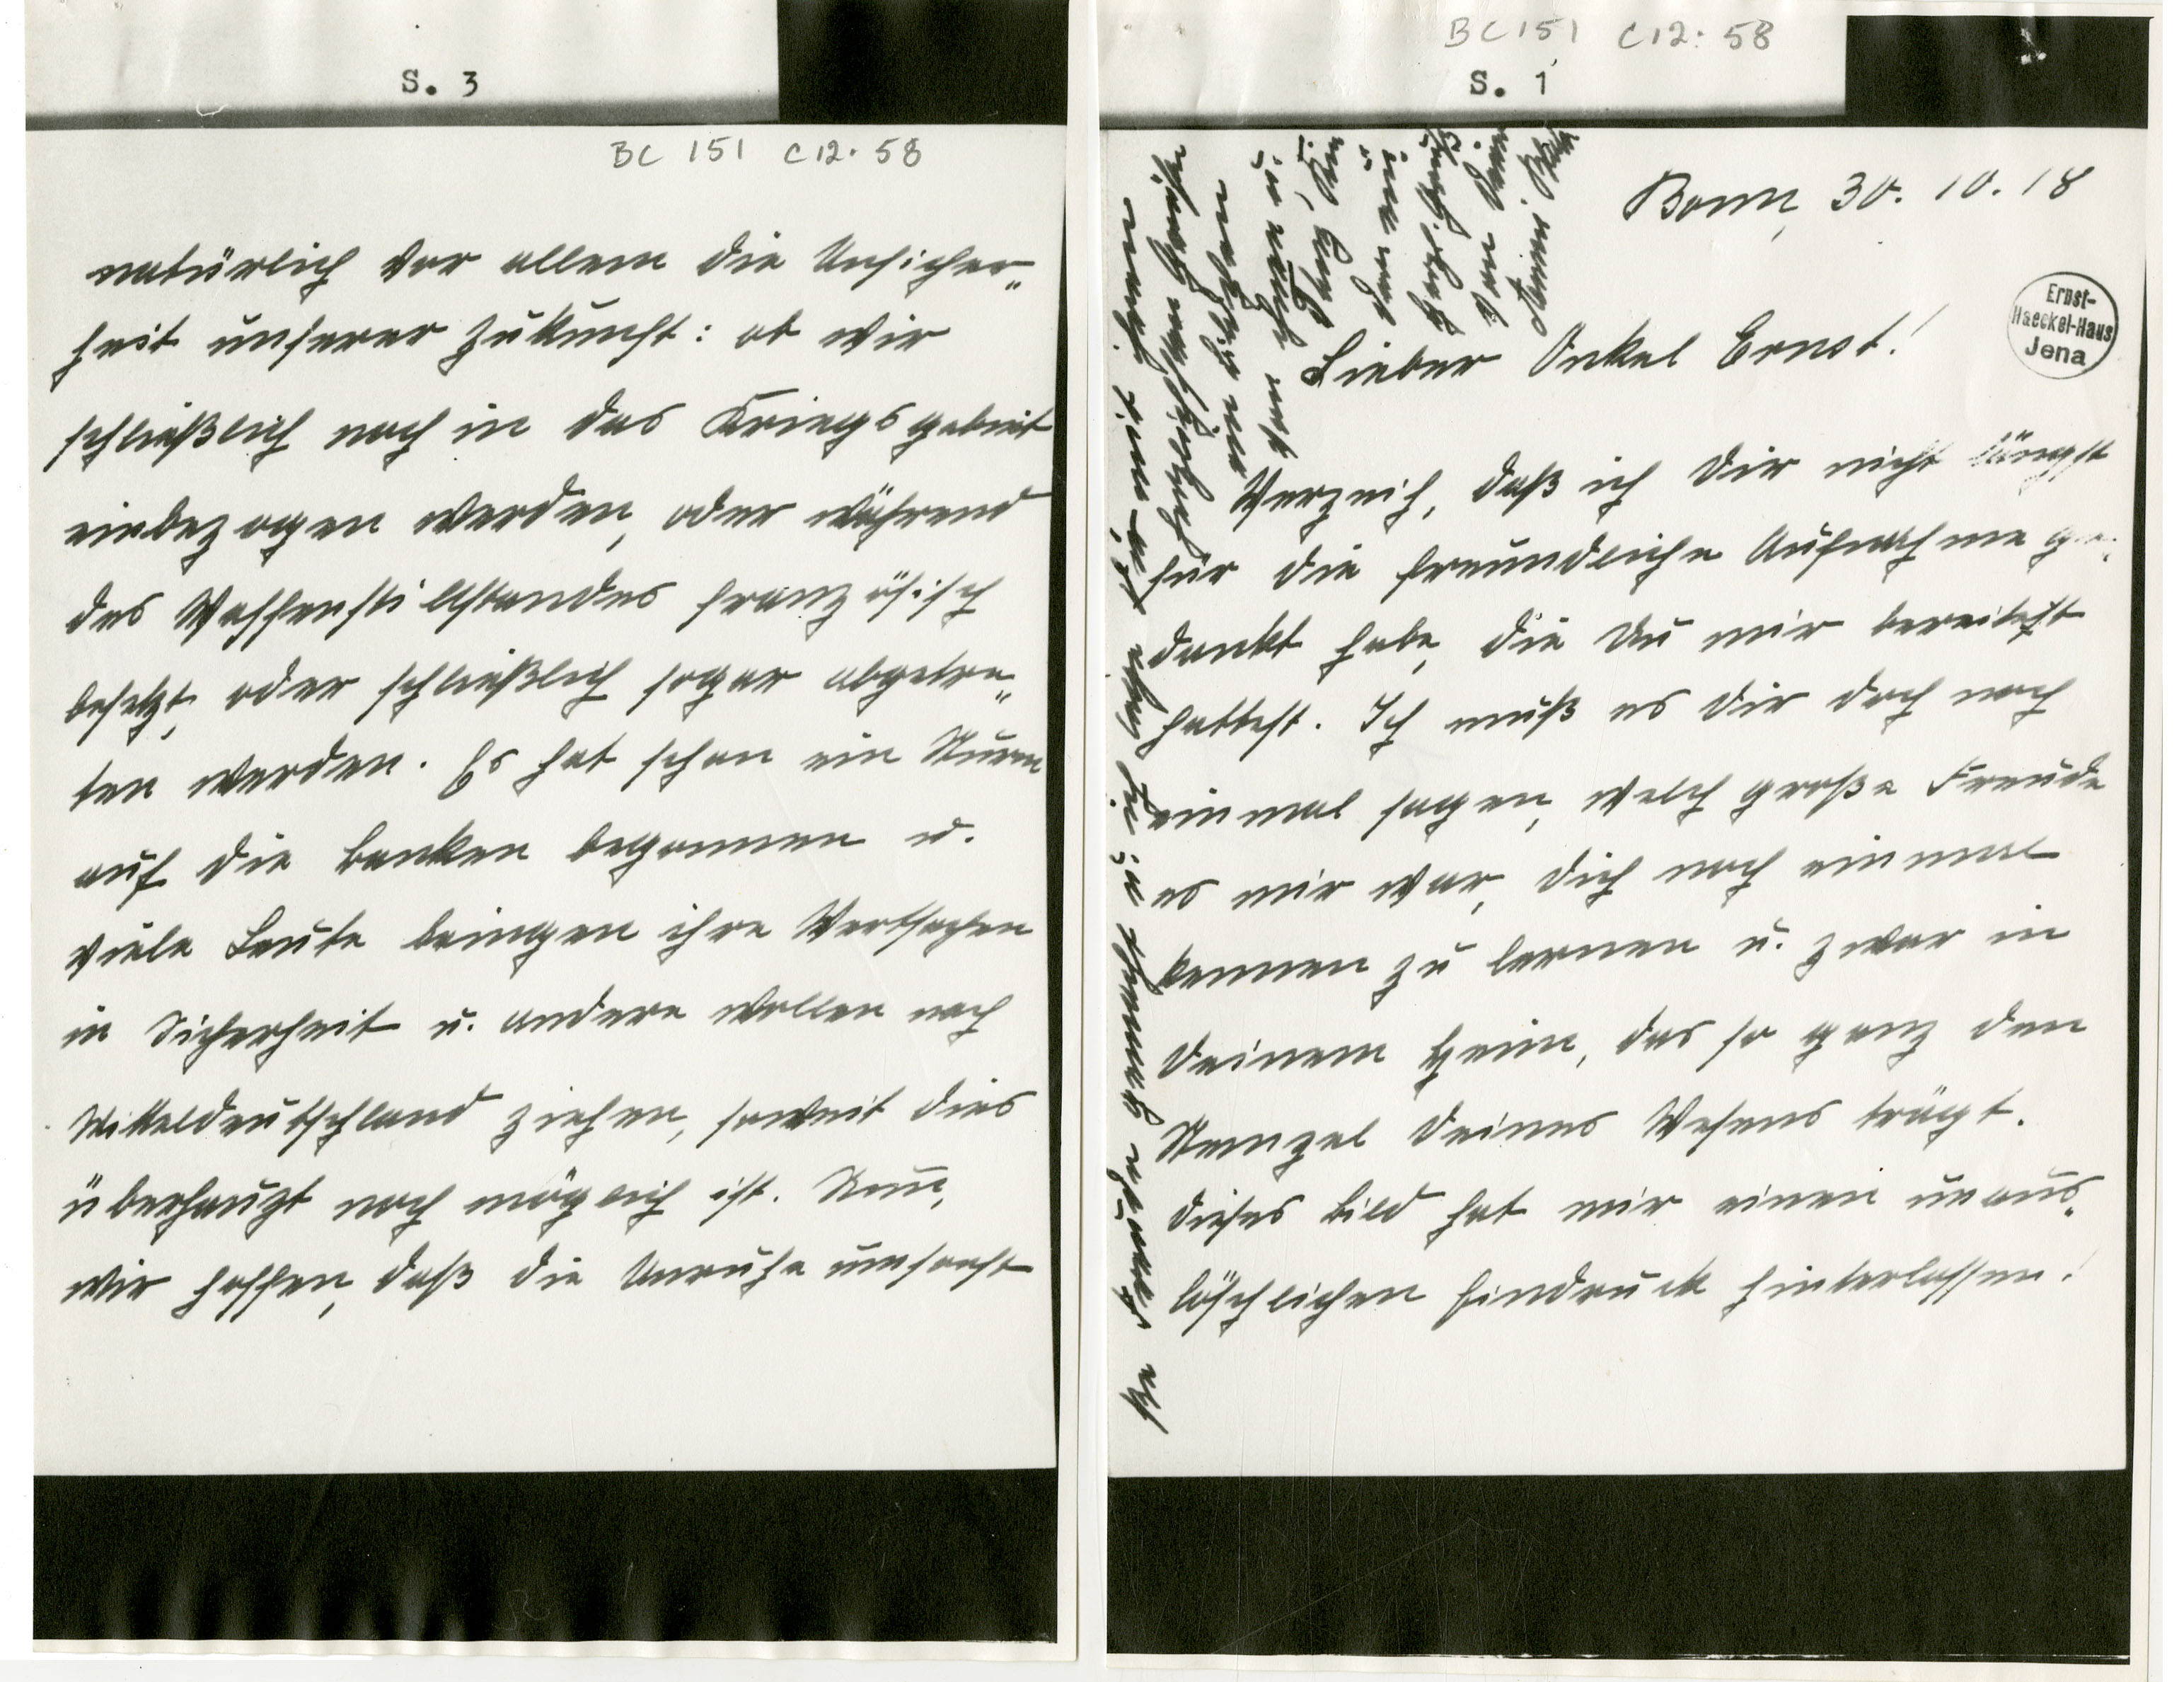 S. 3
BC 151 C12:58
natürlich vor allem die Unsicher„
heit unserer Zukunft: ob wir
schließlich noch in das Kriegsgebiet
einbezogen werden, oder während
des Waffenstillstandes französisch
besetzt, oder schließlich sogar abgetre„
ten werden. Es hat schon ein Sturm
auf die Banken begonnen u.
viele Leute bringen ihre Wertsachen
in Sicherheit u. andere wollen nach
Mitteldeutschland ziehen, soweit dies
überhaupt noch möglich ist. Nun,
wir hoffen, daß die Unruhe umsonst
BC 151 C12:58
S. 1
Bonn, 30. 10. 18
Ernst-
Haeckel-Haus
Jena
Lieber Onkel Ernst!
Verzeih, daß ich Dir nicht längst
für die freundliche Aufnahme ge„
dankt habe, die Du mir bereitest
hattest. Ich muß es Dir doch noch
einmal sagen, welch große Freude
es mir war, Dich noch einmal
kennen zu lernen u. zwar in
Deinem Heim, das so ganz den
Stempel Deines Wesens trägt.
Dieses Bild hat mir einen unaus„
löschlichen Eindruck hinterlassen!
von ihnen u.
herzl. Gruß
von Deinem